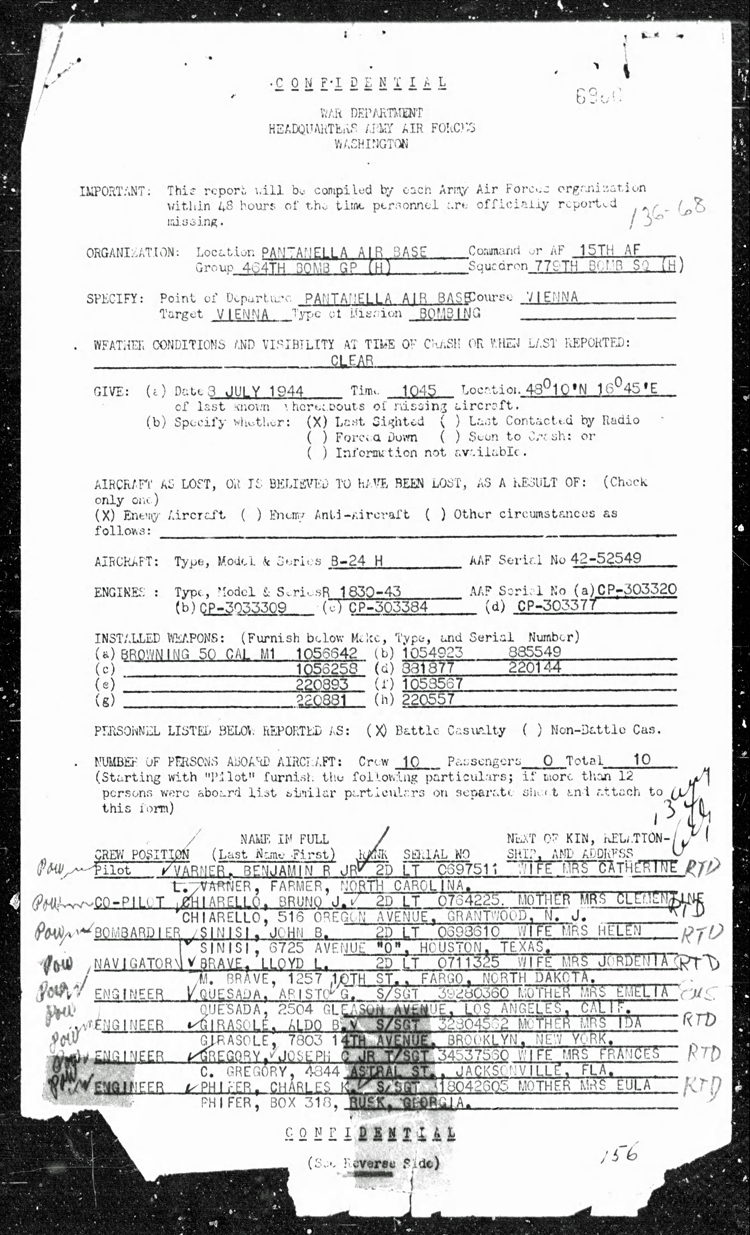 CONFIDENTIAL
WAR DEPARTMENT
HEADQUARTERS ARMY AIR FORCES
WASHINGTON
IMPORTANT: This report will be compiled by each Army Air Forces organization
within 48 hours of the time personnel are officially reported
missing.
136-68
ORGANIZATION: Location PANTANELLA AIR BASE Command or AF 15TH AF
Group 464TH BOMB GP (H) Squadron 779TH BOMB SQ (H)
SPECIFY: Point of Departure PANTANELLA AIR BASE Course VIENNA
Target VIENNA Type of Mission BOMBING
WEATHER CONDITIONS AND VISIBILITY AT TIME OF CRASH OR WHEN LAST REPORTED:
CLEAR
GIVE: (a) Date 8 JULY 1944 Time 1045 Location 48°10'N 16°45'E
of last known whereabouts of missing aircraft.
(b) Specify whether: (X) Last Sighted ( ) Last Contacted by Radio
( ) Forced Down ( ) Seen to Crash: or
( ) Information not available.
AIRCRAFT AS LOST, OR IS BELIEVED TO HAVE BEEN LOST, AS A RESULT OF: (Check
only one)
(X) Enemy Aircraft ( ) Enemy Anti-Aircraft ( ) Other circumstances as
follows:
AIRCRAFT: Type, Model & Series B-24 H AAF Serial No 42-52549
ENGINES : Type, Model & Series R 1830-43 AAF Serial No (a) CP-303320
(b) CP-3033309 (c) CP-303384 (d) CP-303377
INSTALLED WEAPONS: (Furnish below Make, Type, and Serial Number)
(a) BROWNING 50 CAL M1 1056642 (b) 1054923 885549
(c) 1056258 (d) 881877 220144
(e) 220893 (f) 1058567
(g) 220881 (h) 220557
PERSONNEL LISTED BELOW REPORTED AS: (X) Battle Casualty ( ) Non-Battle Cas.
NUMBER OF PERSONS ABOARD AIRCRAFT: Crew 10 Passengers 0 Total 10
(Starting with "Pilot" furnish the following particulars; if more than 12
persons were aboard list similar particulars on separate sheet and attach to
this form)
NAME IN FULL NEXT OF KIN, RELATION-
CREW POSITION (Last Name First) RANK SERIAL NO SHIP, AND ADDRESS
POW Pilot VARNER, BENJAMIN R JR 2D LT 0697511 WIFE MRS CATHERINE RTD
L. VARNER, FARMER, NORTH CAROLINA.
POW CO-PILOT CHIARELLO, BRUNO J. 2D LT 0764225. MOTHER MRS CLEMENTINE
CHIARELLO, 516 OREGON AVENUE, GRANTWOOD, N. J. RTD
POW BOMBARDIER SINISI, JOHN B. 2D LT 0698610 WIFE MRS HELEN RTD
SINISI, 6725 AVENUE "O", HOUSTON, TEXAS.
POW NAVIGATOR BRAVE, LLOYD L. 2D LT 0711325 WIFE MRS JORDENIA RTD
M. BRAVE, 1257 10TH ST., FARGO, NORTH DAKOTA.
POW ENGINEER QUESADA, ARISTO G. S/SGT 39280360 MOTHER MRS EMELIA
QUESADA, 2504 GLEASON AVENUE, LOS ANGELES, CALIF.
POW ENGINEER GIRASOLE, ALDO B. S/SGT 32804562 MOTHER MRS IDA RTD
GIRASOLE, 7803 14TH AVENUE, BROOKLYN, NEW YORK.
POW ENGINEER GREGORY, JOSEPH C JR T/SGT 34537560 WIFE MRS FRANCES RTD
C. GREGORY, 4844 ASTRAL ST., JACKSONVILLE, FLA.
POW ENGINEER PHIFER, CHARLES K. S/SGT 18042605 MOTHER MRS EULA RTD
PHIFER, BOX 318, RUSK, GEORGIA.
CONFIDENTIAL
(See Reverse Side)
156